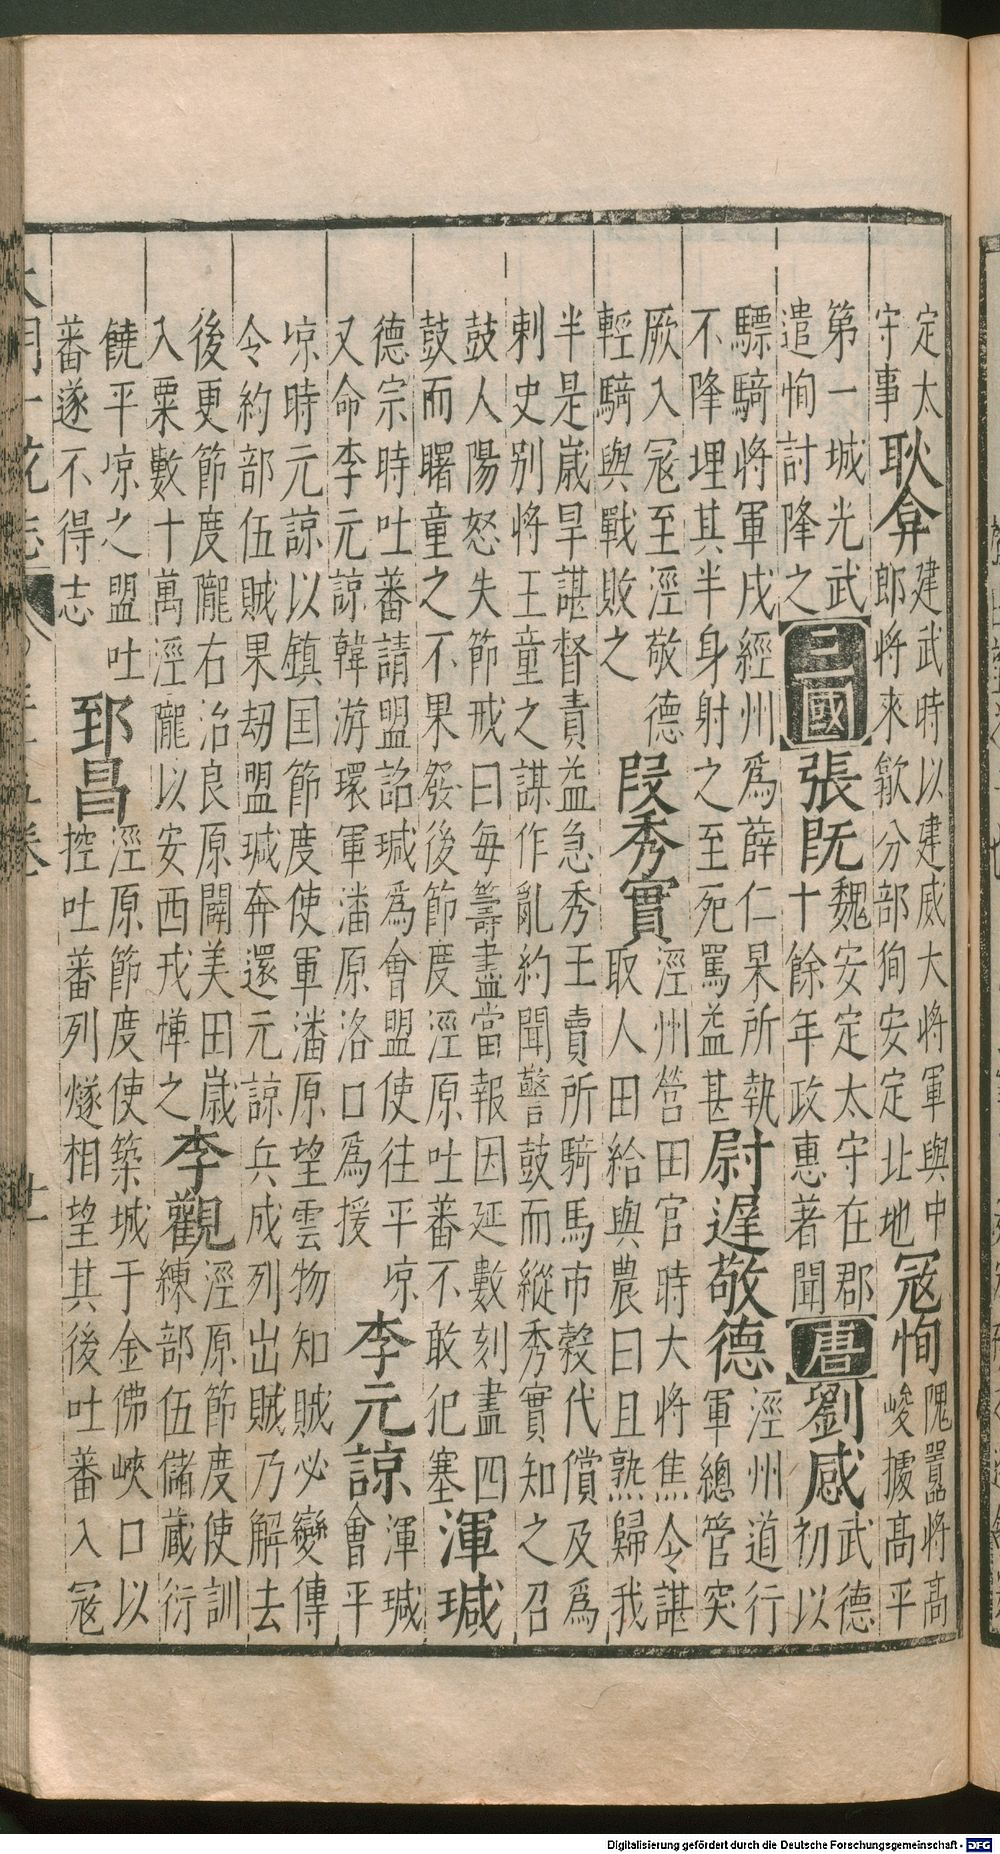 定太
守事
耿弇
建武時以建威大將軍與中
郎將來歙分部狥安定北地
冦恂
隗囂將高
峻據高平
第一城光武
遣恂討降之
三國
張既
魏安定太守在郡
十餘年政惠著聞
唐
劉感
武德
初以
驃騎將軍戍經州爲薛仁杲所執
不降埋其半身射之至死罵益甚
尉遲敬德
涇州道行
軍總管突
厥入冦至涇敬德
輕騎與戰敗之
叚秀實
涇州營田官時大將焦令諶
取人田給與農曰且熟歸我
半是嵗旱諶督責益急秀王賣所騎馬市榖代償及爲
刺史别將王童之謀作亂約聞警鼓而縱秀實知之召
鼓人陽怒失節戒曰每籌盡當報因延數刻盡四
鼓而曙童之不果發後節度涇原吐蕃不敢犯塞
渾瑊
德宗時吐蕃請盟詔瑊爲會盟使往平凉
又命李元諒韓游環軍潘原洛口爲援
李元諒
渾瑊
會平
凉時元諒以鎮囯節度使軍潘原望雲物知賊必變傳
令約部伍賊果刼盟瑊奔還元諒兵成列出賊乃解去
後更節度隴右治良原闢美田嵗
入粟數十萬涇隴以安西戎憚之
李觀
涇原節度使訓
練部伍儲蔵衍
饒平凉之盟吐
蕃遂不得志
郅昌
涇原節度使築城于金佛峽口以
控吐蕃列燧相望其後吐蕃入冦
Digitalisierung gefördert durch die Deutsche Forschungsgemeinschaft - DFG